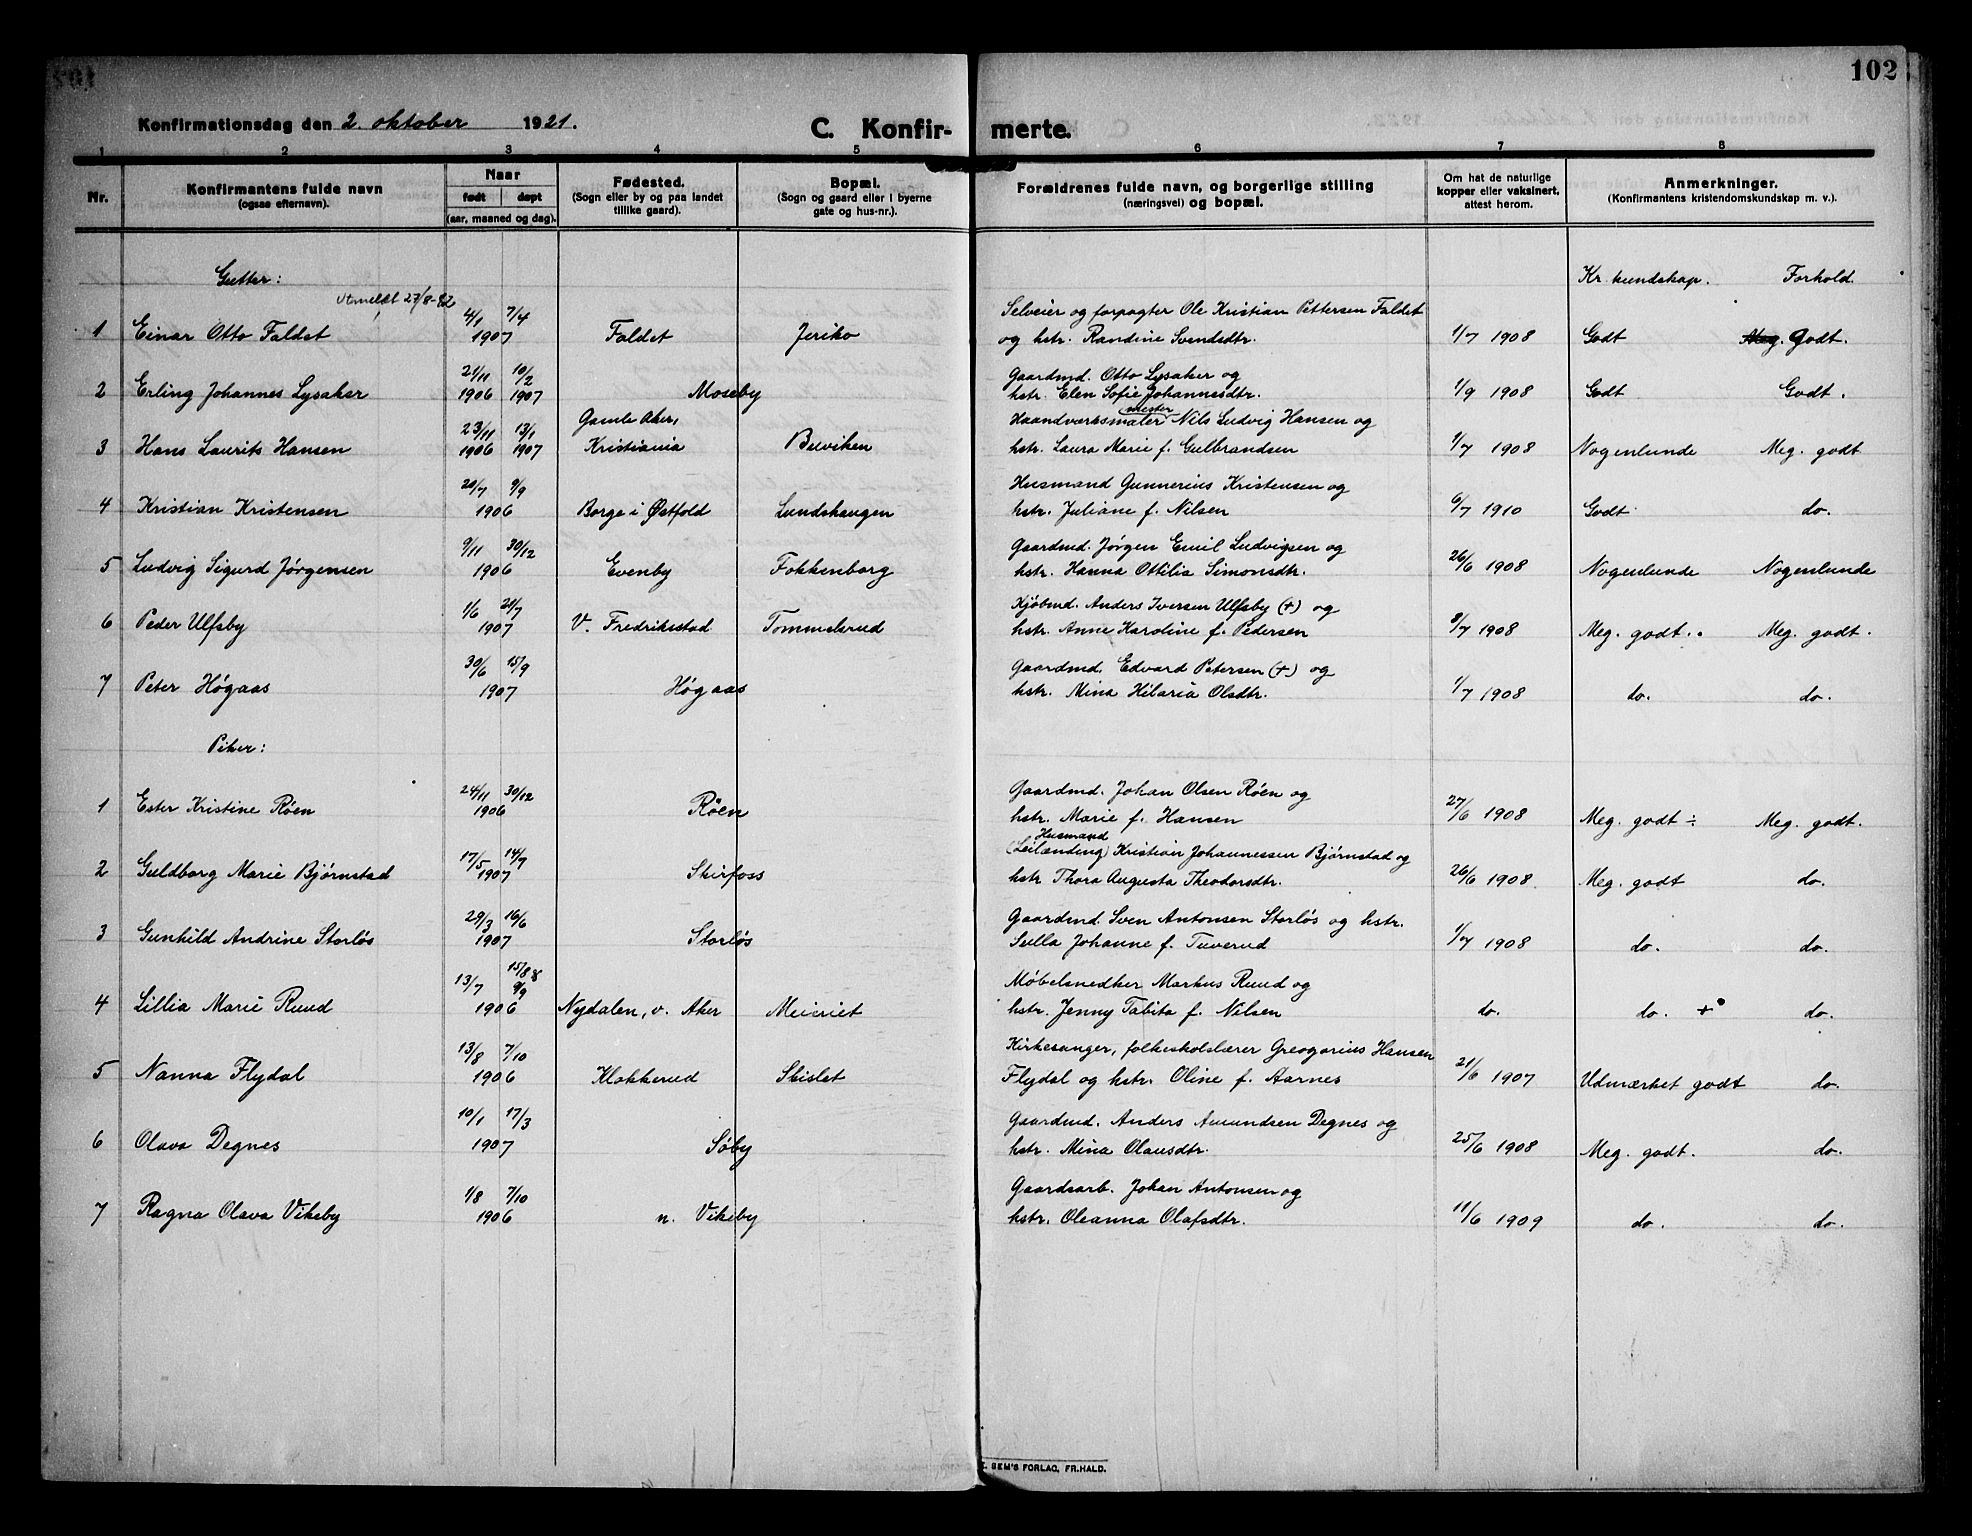 102
Konfirmationsdag den 2. oktober 1921.
C. Konfir- merte.
1 2 3 4 5 6 7 8
Nr.
Konfirmantens fulde navn
(ogsaa efternavn).
Naar
født døpt
(aar, maaned og dag).
Fødested.
(Sogn eller by og paa landet
tillike gaard).
Bopæl.
(Sogn og gaard eller i byerne
gate og hus-nr.).
Forældrenes fulde navn, og borgerlige stilling
(næringsvei) og bopæl.
Om hat de naturlige
kopper eller vaksinert,
attest herom.
Anmerkninger.
(Konfirmantens kristendomskundskap m. v.).
Gutter: Kr. kundskap. Forhold.
Utmeldt 27/8-82
4/1 7/4 Selveier og forpagter Ole Kristian Pettersen Faldet
1 Einar Otto Faldet 1907 Faldet Jeriko og hstr. Randine Svendsdtr. 1/7 1908 Godt Meg. godt.
21/11 10/2 Gaardmd. Otto Lysaker og
2 Erling Johannes Lysaker 1906 1907 Moseby hstr. Elen Sofie Johannesdtr. 1/9 1908 Godt Godt.
mester
23/11 13/1 Gamle Aker, Haandverksmaler Nils Ludvig Hansen og
3 Hans Laurits Hansen 1906 1907 Kristiania Buviken hstr. Laura Marie f. Gulbrandsen 1/7 1908 Nogenlunde Meg. godt
20/7 9/9 Husmand Gunnerius Kristensen og
4 Kristian Kristensen 1906 Borge i Østfold Lundshaugen hstr. Juliane f. Nilsen 6/7 1910 Godt do.
9/11 30/12 Gaardmd. Jørgen Emil Ludvigsen og
5 Ludvig Sigurd Jørgensen 1906 Evenby Fokkenborg hstr. Hanna Ottilia Simonsdtr. 26/6 1908 Nogenlunde Nogenlunde
1/6 21/7 Kjøbmd. Anders Iversen Ulfsby (+) og
6 Peder Ulfsby 1907 V. Fredriksstad Tommelsrud hstr. Anne Karoline f. Pedersen 8/7 1908 Meg. godt.. Meg. godt.
30/6 15/9 Gaardmd. Edvard Petersen (+) og
7 Peter Høgaas 1907 Høgaas hstr. Mina Hilaria Olsdtr. 1/7 1908 do. do.
Piker:
24/11 30/12 Gaardmd. Johan Olsen Røen og
1 Ester Kristine Røen 1906 Røen hstr. Marie f. Hansen 27/6 1908 Meg. godt ÷ Meg. godt.
Husmand
17/5 14/7 (Leilænding) Kristian Johannessen Bjørnstad og
2 Guldborg Marie Bjørnstad 1907 Skirfoss hstr Thora Augusta Theodorsdtr. 26/6 1908. Meg. godt do.
29/3 16/6 Gaardmd Sven Antonsen Storløs og hstr.
3 Gunhild Andrine Storløs 1907 Storløs Sulla Johanne f. Tuverud 1/7 1908 do. do.
13/7 15/8 8 9/9 Møbelsnedker Markus Ruud og
4 Lillia Marie Ruud 1906 Nydalen, v. Aker Meieriet hstr. Jenny Tabita f. Nilsen do. do. + do.
13/8 7/10 Kirkesanger, folkeskolelærer Greogorius Hansen
5 Nanna Flydal 1906 Klokkerud Skislet Flydal og hstr. Oline f. Aarnes 21/6 1907 Udmærket godt do.
10/1 17/3 Gaardmd. Anders Amundsen Degnes og
6 Olava Degnes 1907 Søby hstr. Mina Olausdtr. 25/6 1908 Meg. godt. do.
1/8 7/10 Gaardsarb. Johan Antonsen og
7 Ragna Olava Vikeby 1906 n. Vikeby hstr. Oleanna Olafsdtr. 11/6 1909 do. do.
SEM'S FORLAG, FR.HALD.